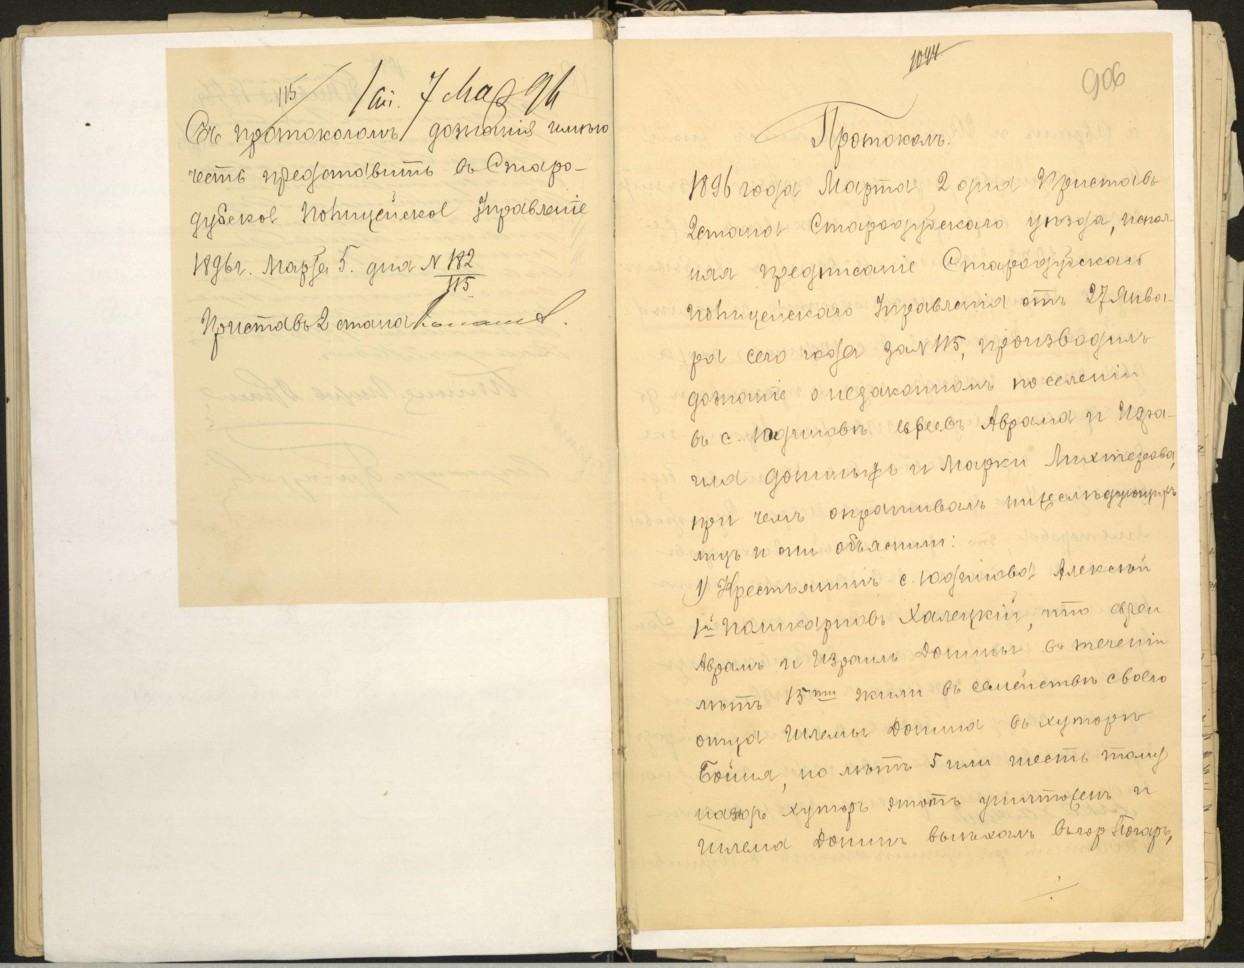 115
7 Мар 96
Съ протоколомъ дознанія имѣю
честь представить въ Старо-
дубское Полицейское Управленіе
1896 г. Марта 5 дня № 182
115
Приставъ 2 стана
1044
906
Протоколъ.
1896 года Марта 2 дня Приставъ
2 стана Стародубскаго уѣзда, испол-
няя предписаніе Стародубскаго
Полицейскаго Управленія отъ 27 Янва-
ря сего года за № 115, производилъ
дознаніе о незаконномъ поселеніи
въ с. Юдиновѣ евреевъ Аврама и Изра-
иля Дониныхъ и Марки Лихтерова,
при чемъ опрашивалъ нижеслѣдующихъ
лицъ и они объяснили:
1) Крестьянинъ с. Юдинова Алексѣй
Поликарповъ Халецкій, что евреи
Аврамъ и Израиль Донины въ теченіи
лѣтъ 15ти жили въ семействѣ своего
отца Шлемы Донина въ хуторѣ
но лѣтъ 5 или шесть тому
назадъ хуторъ этотъ уничтоженъ и
Шлема Донинъ выѣхалъ въ гор Погаръ,